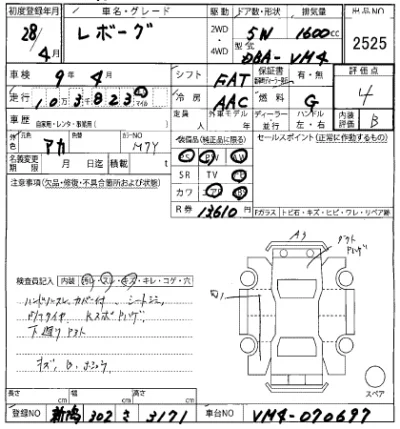 初度登録年月 車名・グレード 駆動 ドア数・形状 排気量 出品NO
28/4月 レボーグ 2WD・4WD 5W 1600cc 2525
型式 DBA-VM4
車検 9年4月 シフト FAT 保証書 有・無 評価点 4
走行 103823 マイル 冷房 AAC 燃料 G
定員 人 外車モデル 年 ディーラー・並行 ハンドル 左・右 内装評価 B
車歴 自家用・レンタ・事業用( )
色 元色 アカ カラーNO M7Y
装備品(純正品に限る) セールスポイント(正常に作動するもの)
名義変更期限 月 日迄 積載 t
PS PW AW
SR TV
カワ エアB
R券 13610円
注意事項(欠品・修復・不具合箇所および状態)
Fガラス トビ石・キズ・ヒビ・ワレ・リペア跡
検査員記入 内装 汚レ・スレ・キズ・キレ・コゲ・穴
ハンドルスレ カバー付 シートシミ
下廻り
キズ
A3
スペア
長さ cm 幅 cm 高さ cm
登録NO 新潟 302 さ 3171 車台NO VM4-070697